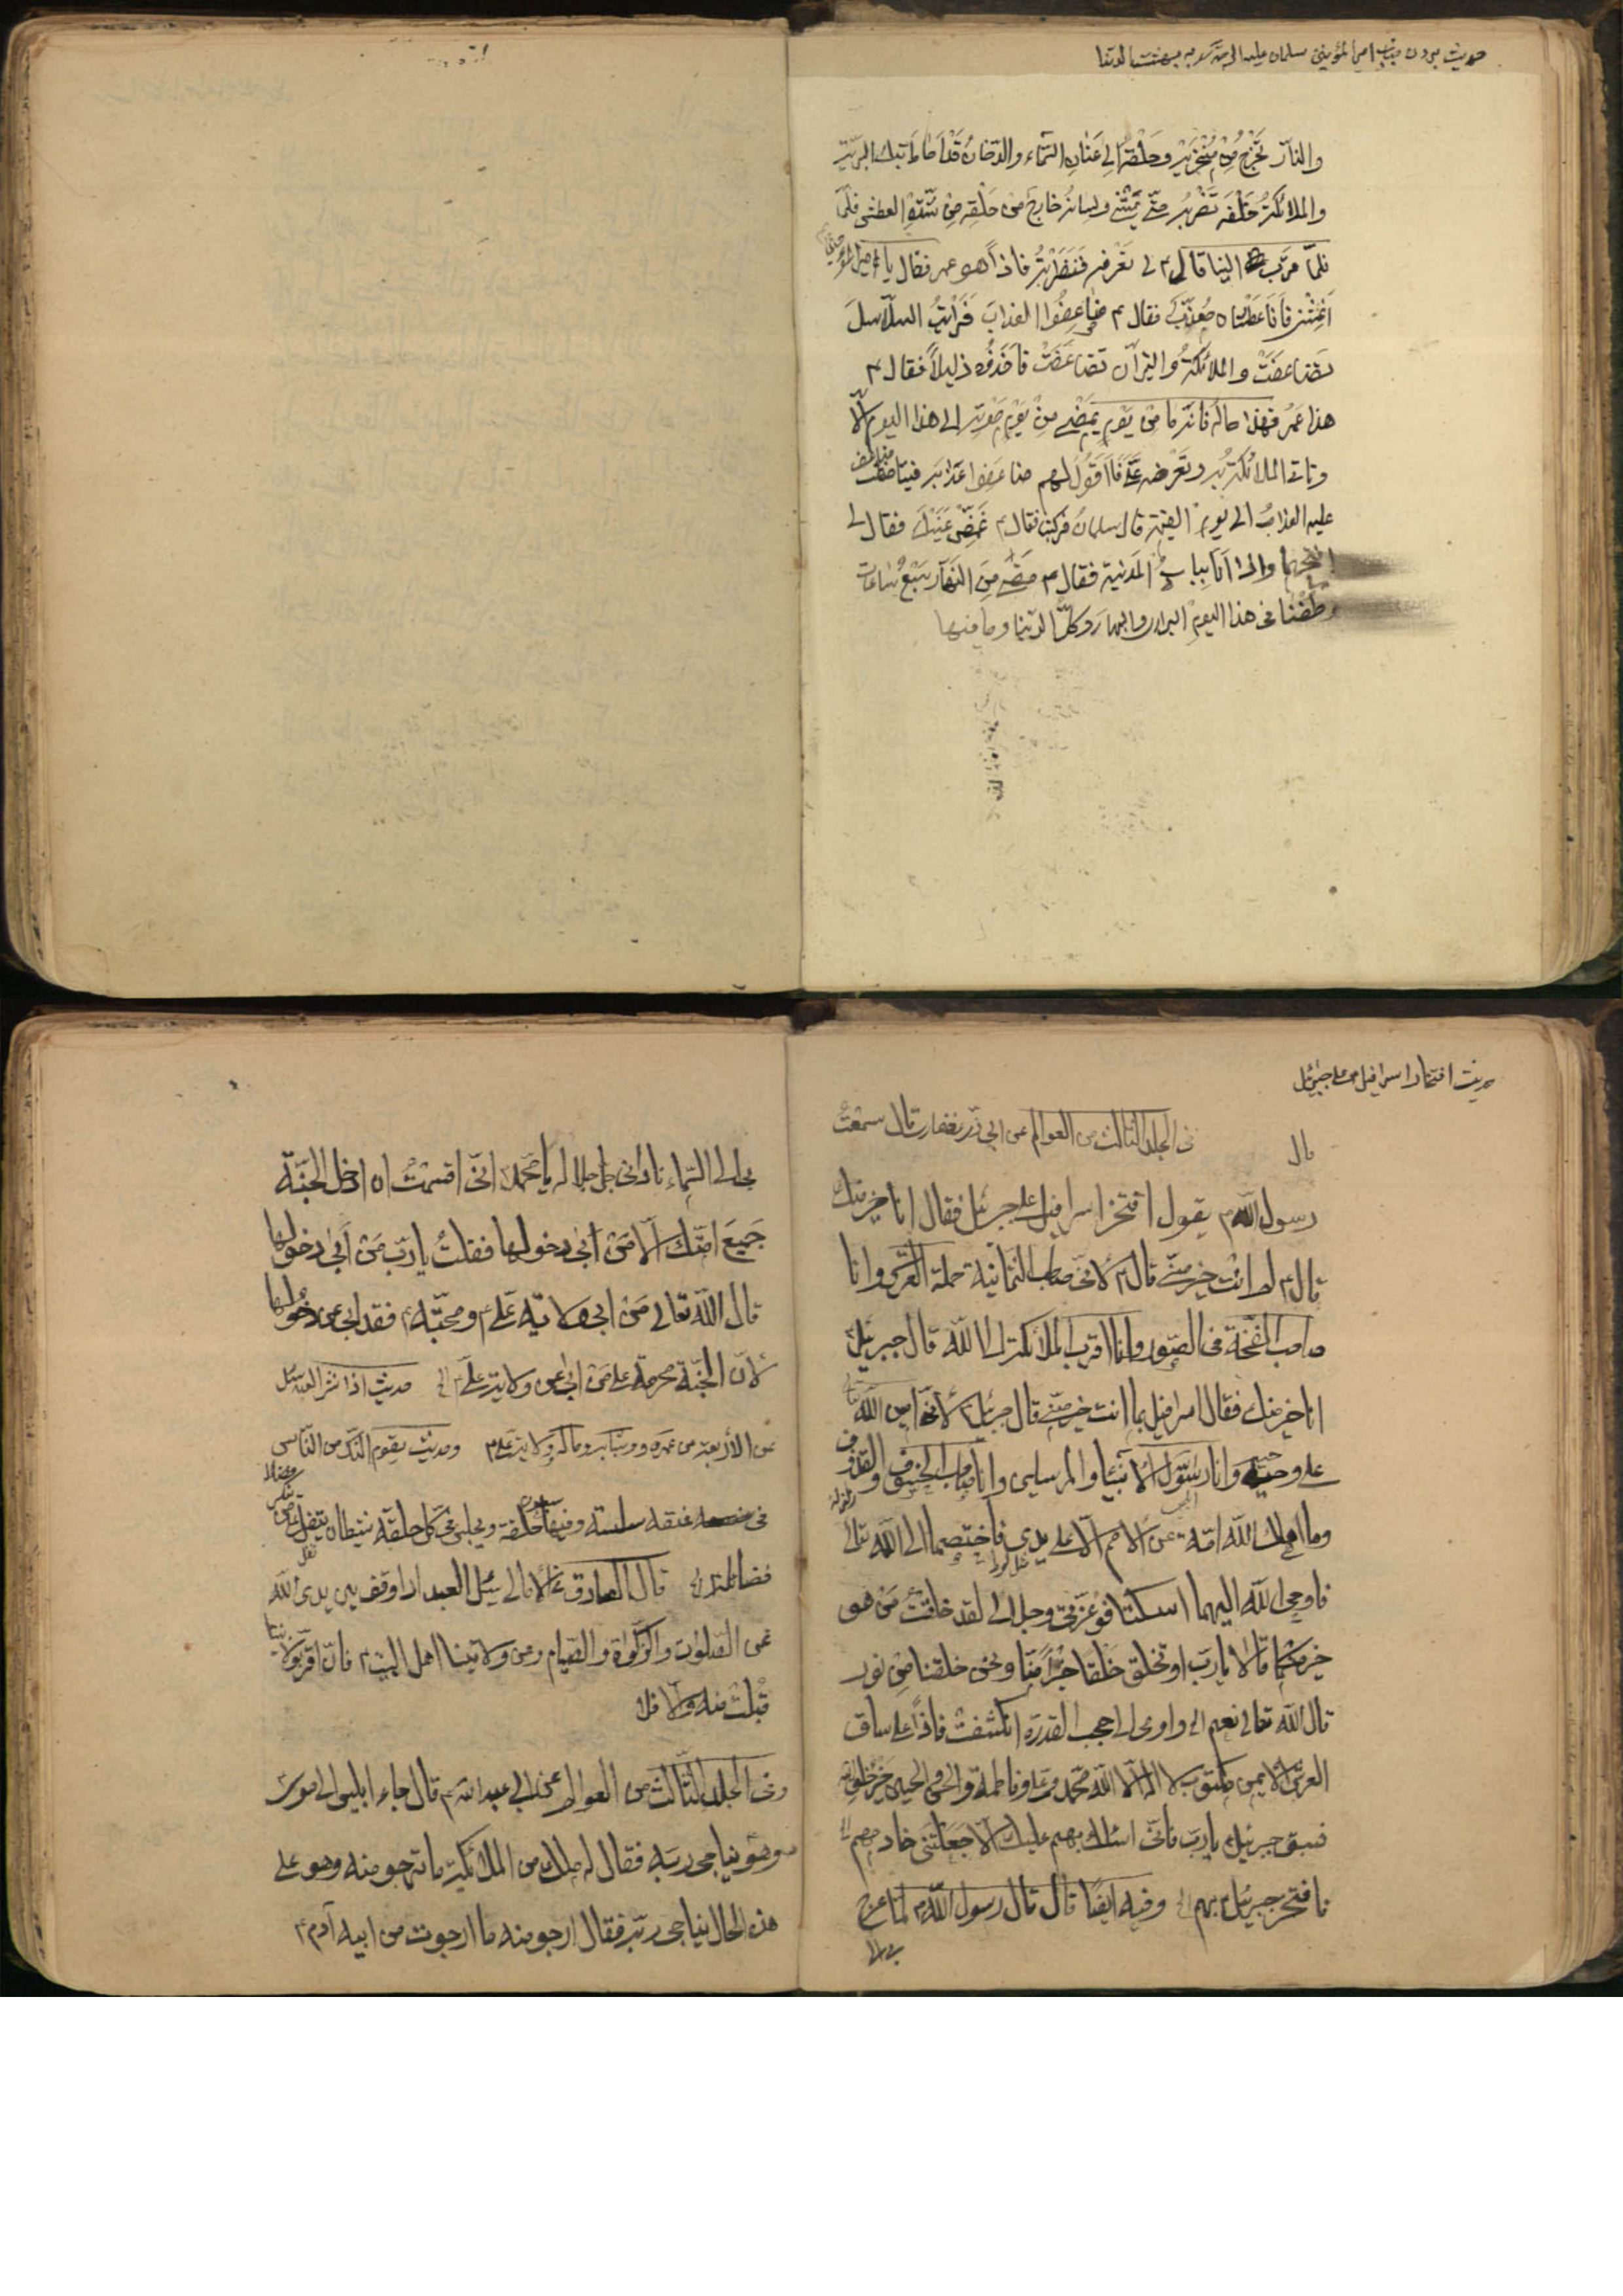 حدیث بردن جناب امیر المؤمنین سلمان علیه الرحمة
والنار تخرج من منخریه وحلقه الی عنان السماء والدخان قد احاط تلك البریة
والملائکة خلفه تضربه حتی یمشی ولسانه خارج من حلقه من شدة العطش فلما
فلما قرب الینا قال لی تعرفه فنظرته فاذا هو عمر فقال یا امیر المؤمنین
اغثنی فأنا عطشان معذب فقال ضاعفوا العذاب فرأیت السلاسل
تضاعفت والملائکة والنیران تضاعفت فاخذوه ذلیلاً فقال م
هذا عمر فهذا حاله فانه ما من یوم یمضی من یوم موته الی هذا الیوم الا
وتاتی الملائکة به وتعرضه علی فأقول لهم ضاعفوا عذابه فیتضاعف
علیه العذاب الی یوم القیمة قال سلمان فرکبنا فقال م غمض عینیك فقال لی
افتحهما واذا انا بباب المدینة فقال م مضی من النهار سبع ساعات
وطفنا فی هذا الیوم البراری والبحار وکل الدنیا وما فیها
حدیث افتخار اسرافیل علی جبرئیل
فی الجلد الثالث من العوالم عن ابی ذر غفاری قال سمعت
رسول الله م یقول افتخر اسرافیل علی جبرئیل فقال انا خیر منك
قال م لم انت خیر منی قال م لانی صاحب الثمانیة حملة العرش وانا
صاحب النفخة فی الصور وانا اقرب الملائکة الی الله قال جبرئیل
انا خیر منك فقال اسرافیل بما انت خیر منی قال جبرئیل لانی امین الله
علی وحیه وانا رسول الی الانبیاء والمرسلین وانا صاحب الخسوف والقذوف
وما اهلك الله امة من الامم الا علی یدی فاختصما الی الله تعالی
فاوحی الله الیهما اسکتا فوعزتی وجلالی لقد خلقت من هو
خیر منکما قالا یا رب او تخلق خلقا خیراً منا ونحن خلقنا من نور
قال الله تعالی نعم واوحی الی حجب القدرة انکشفت فاذا علی ساق
العرش الایمن مکتوب لا اله الا الله محمد وعلی وفاطمة والحسن والحسین خیر خلق الله
فسبق جبرئیل یا رب فانی اسئلك بهم علیك الا جعلتنی خادمهم
فافتخر جبرئیل م بهم وفیه ایضا قال قال رسول الله م لما عرج
بی الی
بی الی السماء نادانی جل جلاله یا محمد انی اقسمت ان ادخل الجنة
جمیع امتك الا من ابی دخولها فقلت یا رب من ابی دخولها
قال الله تعالی من ابی ولایة علی م ومحبته فقد ابی عن دخولها
لان الجنة محرمة علی من ابی عن ولایة علی
عن الاربعة من عمره وشبابه وماله وولایة علی م وحدیث یقوم الشاك من الناس
فضائله قال الصادق م یسئل العبد اذا وقف بین یدی الله
عن الصلوات والزکوة والصیام وعن ولایتنا اهل البیت م فان اقر بولایتنا
قبلت منه والا فلا
وفی الجلد الثالث من العوالم عن ابی عبد الله م قال جاء ابلیس الی موسی
وهو یناجی ربه فقال له ملك من الملائکة ما ترجو منه وهو علی
هذه الحال یناجی ربه فقال ارجو منه ما ارجوت من ابیه آدم م